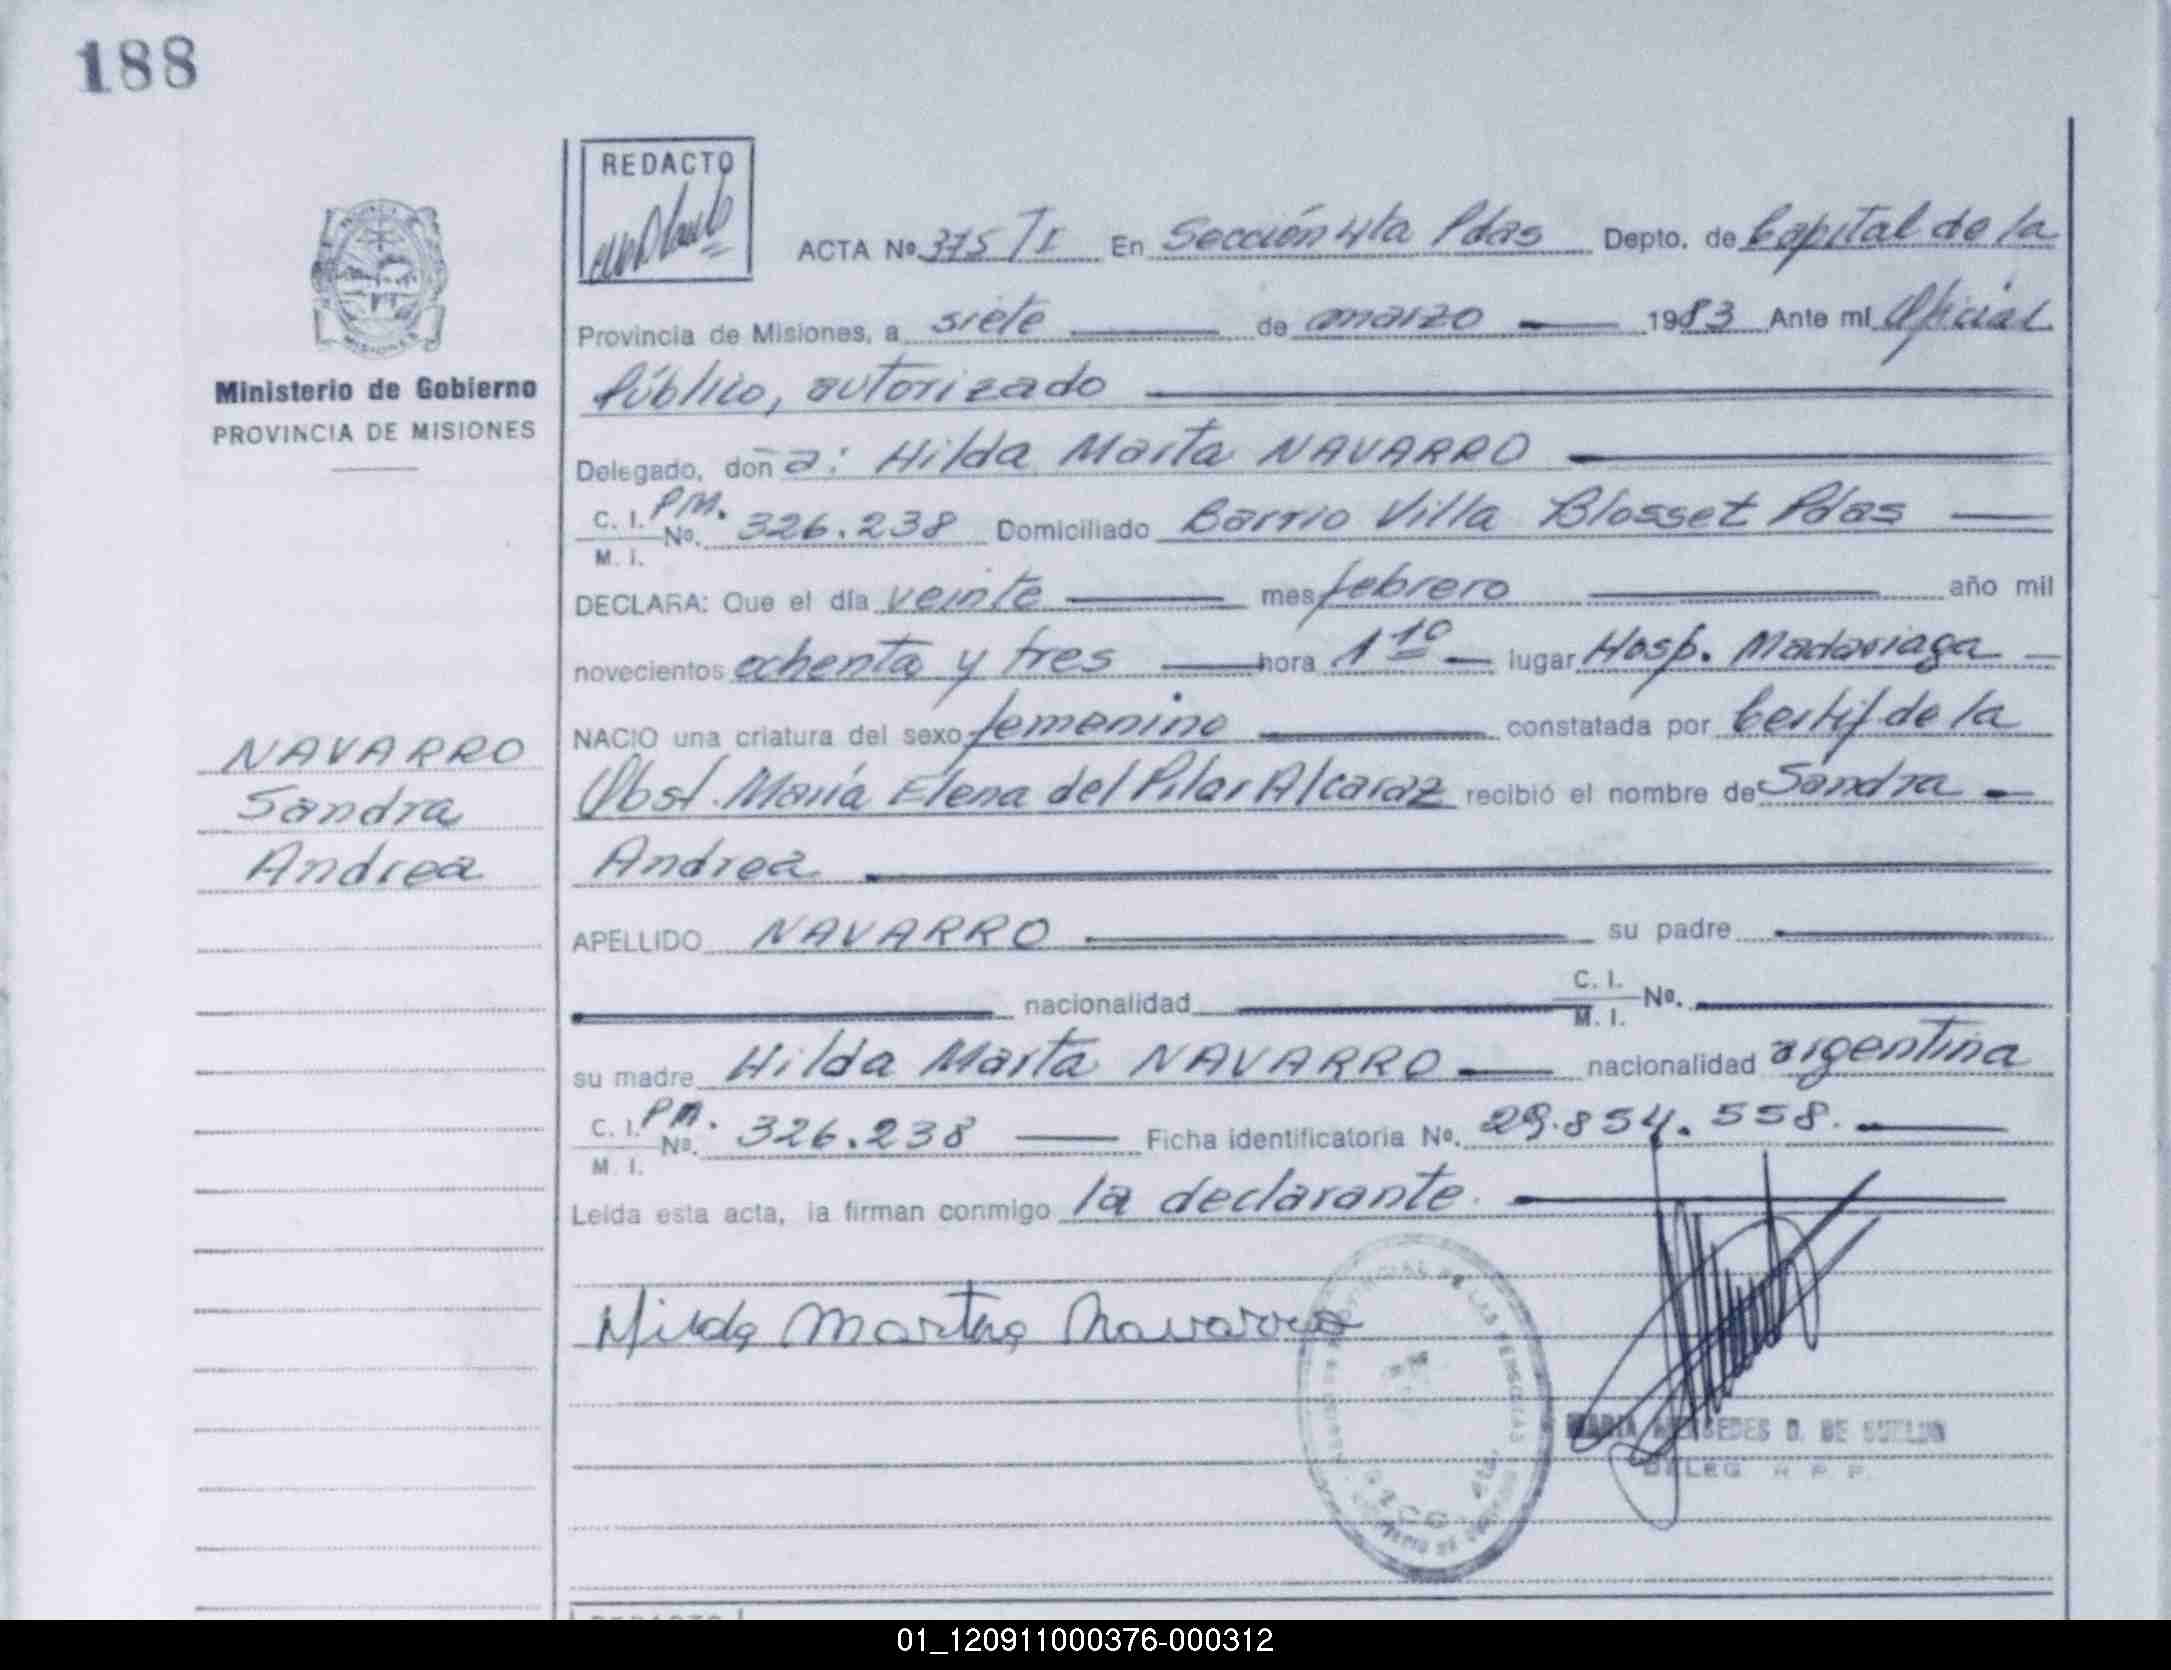 188
REDACTO
ACTA Nº 375 T I En Sección 4ta Pdas Depto. de Capital de la
Provincia de Misiones, a siete de marzo 1983 Ante mi Oficial
Público, autorizado
Ministerio de Gobierno
PROVINCIA DE MISIONES
Delegado, doña: Hilda Marta NAVARRO
C. I. PM.
M. I. Nº. 326.238 Domiciliado Barrio Villa Blosset Pdas
DECLARA: Que el día veinte mes febrero año mil
novecientos ochenta y tres hora 1 10 lugar Hosp. Madariaga
NACIO una criatura del sexo femenino constatada por Certif de la
Obst. María Elena del Pilar Alcaraz recibió el nombre de Sandra
Andrea
NAVARRO
Sandra
Andrea
APELLIDO NAVARRO su padre
nacionalidad C. I. Nº.
M. I.
su madre Hilda Marta NAVARRO nacionalidad argentina
C. I. PM.
M. I. Nº. 326.238 Ficha identificatoria Nº. 29.854.558.
Leída esta acta, la firman conmigo la declarante.
Hilda Marta Navarro
MARIA MERCEDES D. DE
DELEG R. P. P.
01_120911000376-000312